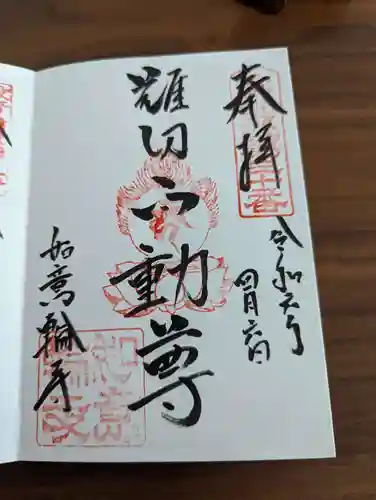 奉拝
令和六年
四月六日
難切不動尊
如意輪寺